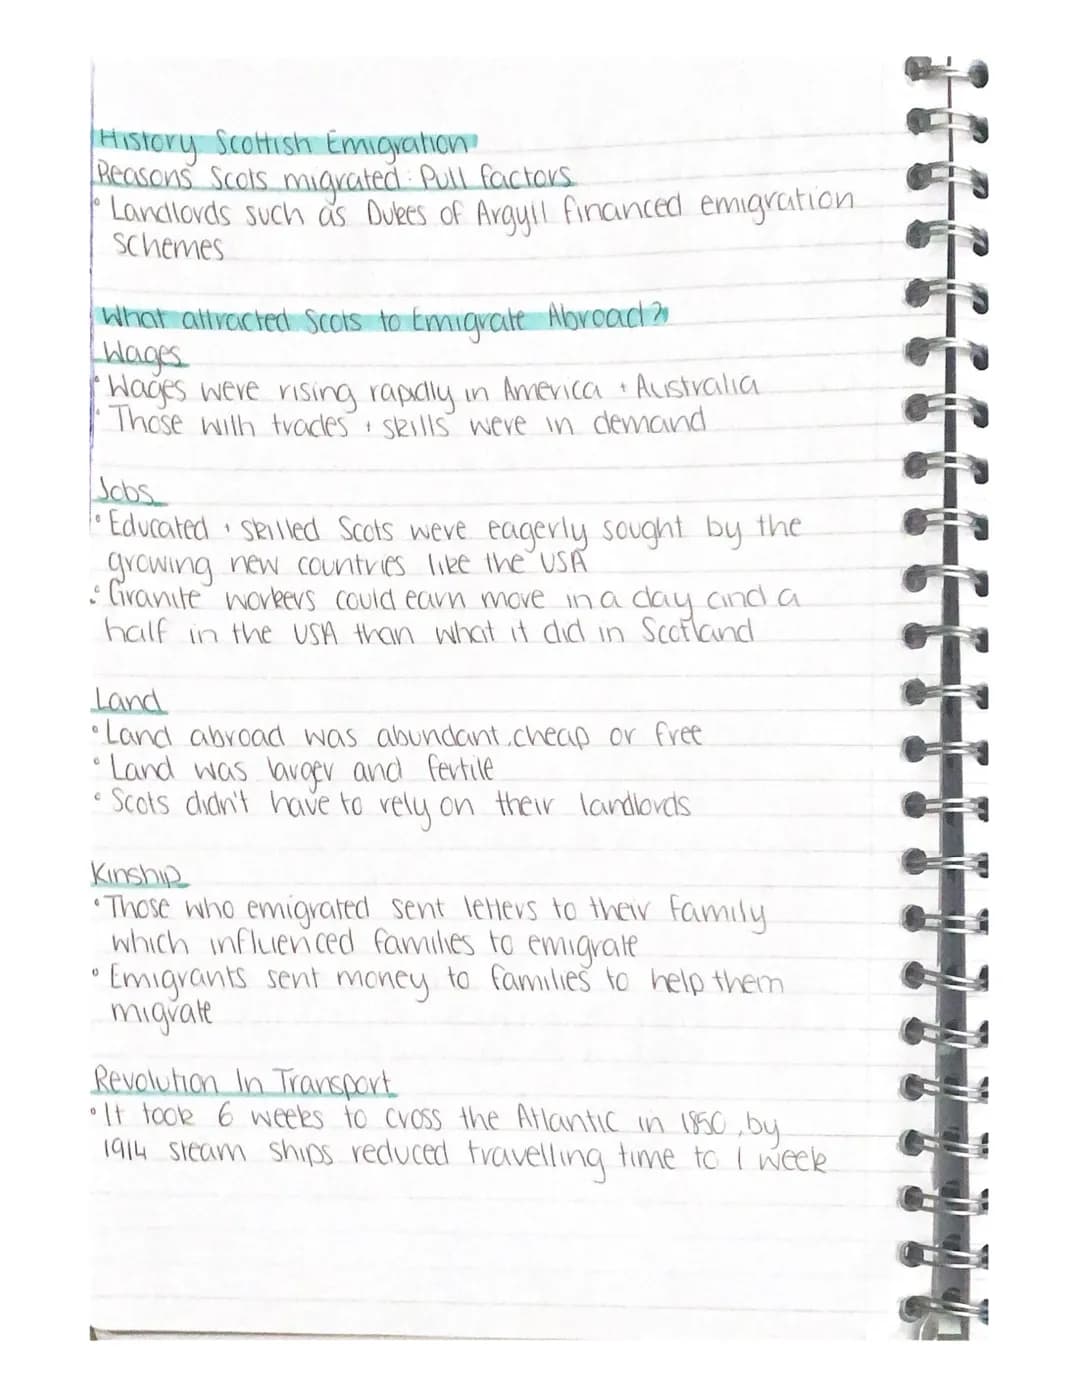 History Scottish Emigration
Reasons Scots migrated: Pull factors
• Landlords such as Dukes of Argyll financed emigration
schemes
What attracted Scots to Emigrate Abroad?
Wages
• Wages were rising rapidly in America + Australia
• Those with trades + skills were in demand
Jobs
• Educated + skilled Scots were eagerly sought by the
growing new countries like the USA
• Granite workers could earn more in a day and a
half in the USA than what it did in Scotland
Land
• Land abroad was abundant, cheap or free
• Land was larger and fertile
• Scots didn't have to rely on their landlords
Kinship
• Those who emigrated sent letters to their family
which influenced families to emigrate
• Emigrants sent money to families to help them
migrate
Revolution In Transport
• It took 6 weeks to cross the Atlantic in 1850, by
1914 steam ships reduced travelling time to 1 week